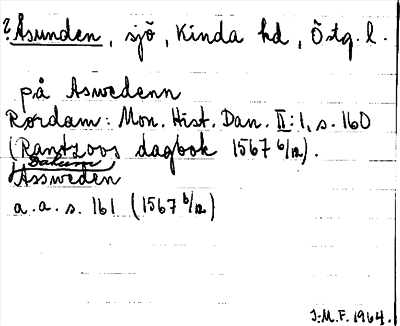 ? Åsunden, sjö, Kinda hd, Östg. l.
på Aswedenn
Rørdam: Mon. Hist. Dan. II:1, s. 160
(Rantzovs dagbok 1567 6/12).
Datum
Assweden
a.a.s. 161 (1567 6/12)
J:M.F. 1964.